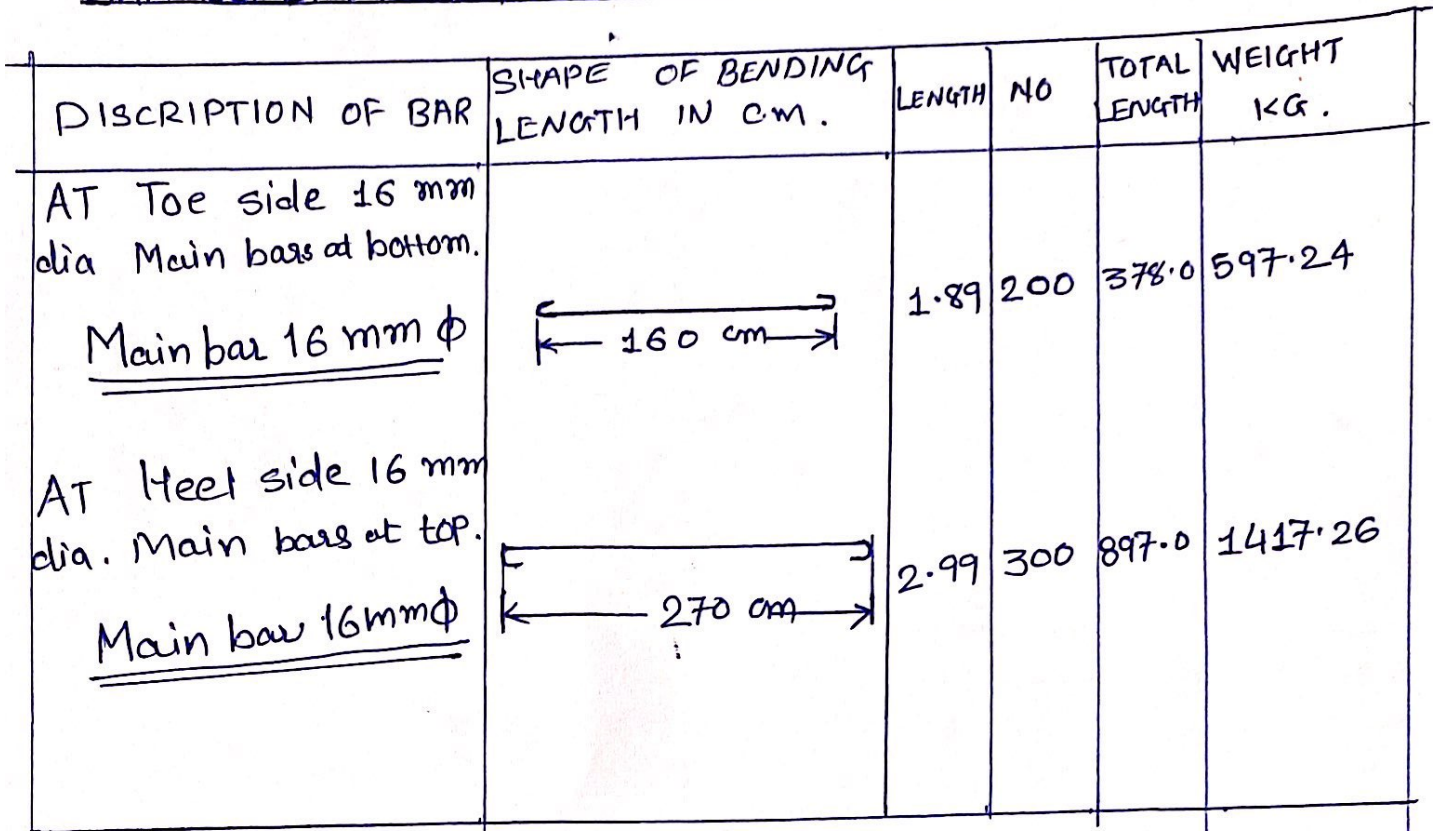 DISCRIPTION OF BAR
SHAPE OF BENDING
LENGTH IN cm.
LENGTH
NO
TOTAL
LENGTH
WEIGHT
KG.
AT Toe side 16 mm
dia Main bars at bottom.
Main bar 16 mm ϕ
160 cm
1.89
200
378.0
597.24
AT Heel side 16 mm
dia. Main bars at top.
Main bar 16mmϕ
270 cm
2.99
300
897.0
1417.26